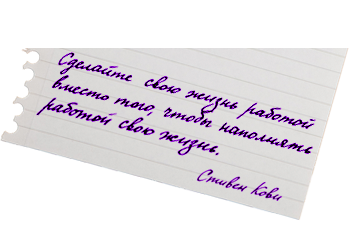 Сделайте свою жизнь работой
вместо того, чтобы наполнять
работой свою жизнь.
Стивен Кови